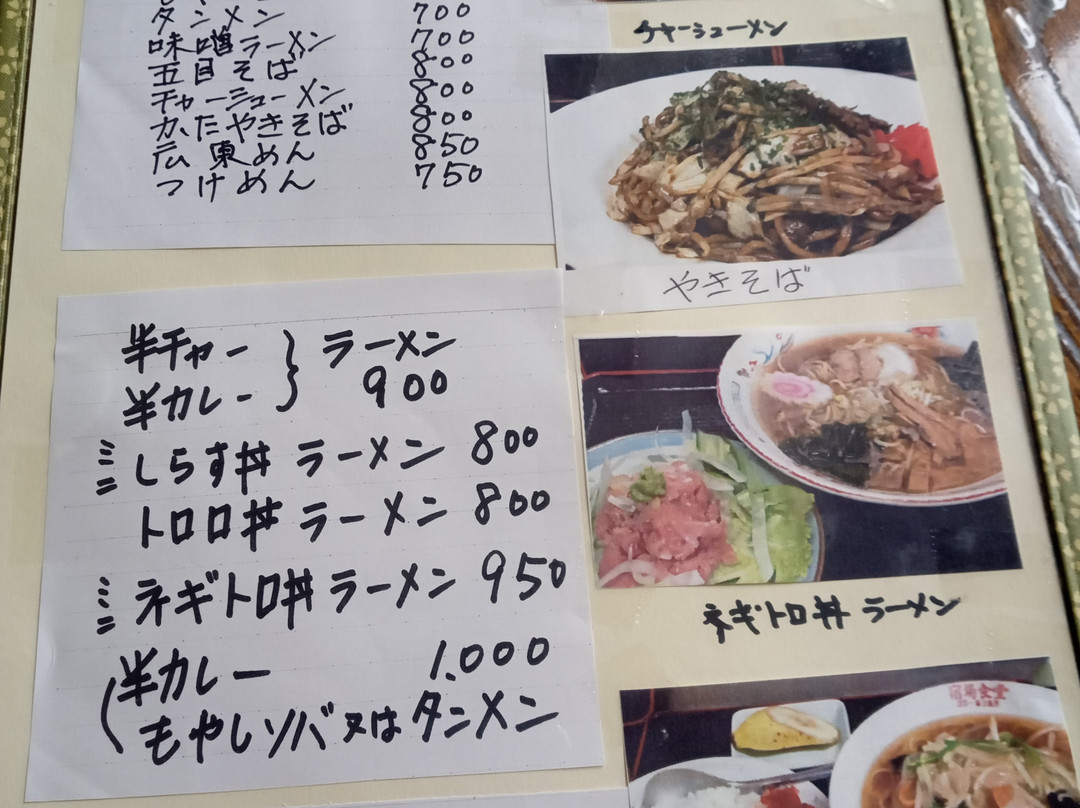 タンメン 700
味噌ラーメン 700
五目そば 800
チャーシューメン 800
かたやきそば 800
広東めん 850
つけめん 750
半チャー } ラーメン
半カレー 900
ミニ しらす丼 ラーメン 800
トロロ丼 ラーメン 800
ミニ ネギトロ丼 ラーメン 950
半カレー 1.000
( もやしソバ 又は タンメン
チャーシューメン
やきそば
ネギトロ丼 ラーメン